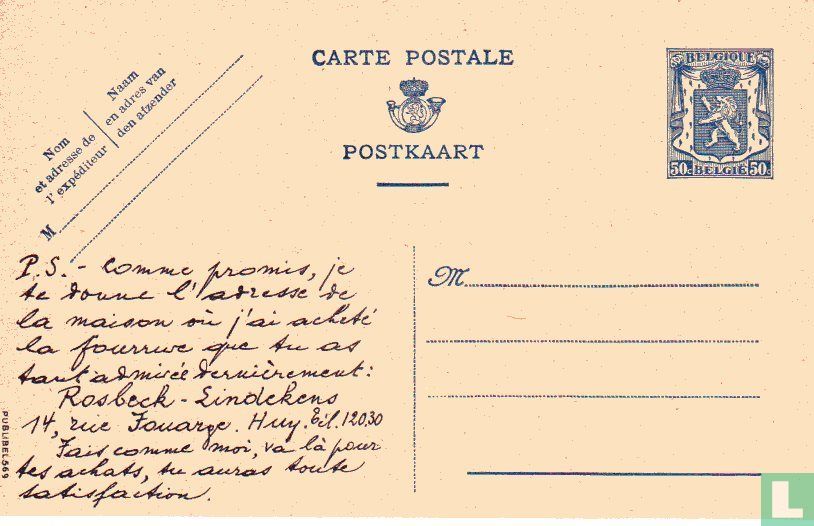 CARTE POSTALE
POSTKAART
BELGIQUE
50c BELGIË 50c
Nom
et adresse de
l'expéditeur
Naam
en adres van
den afzender
M
P.S.- Comme promis, je
te donne l'adresse de
la maison où j'ai acheté
la fourrure que tu as
tant admirée dernièrement:
Rosbeck-Lindekens
14, rue Fouarge. Huy. Tél. 120.30
Fais comme moi, va là pour
tes achats, tu auras toute
satisfaction.
M
PUBLIBEL 569
L